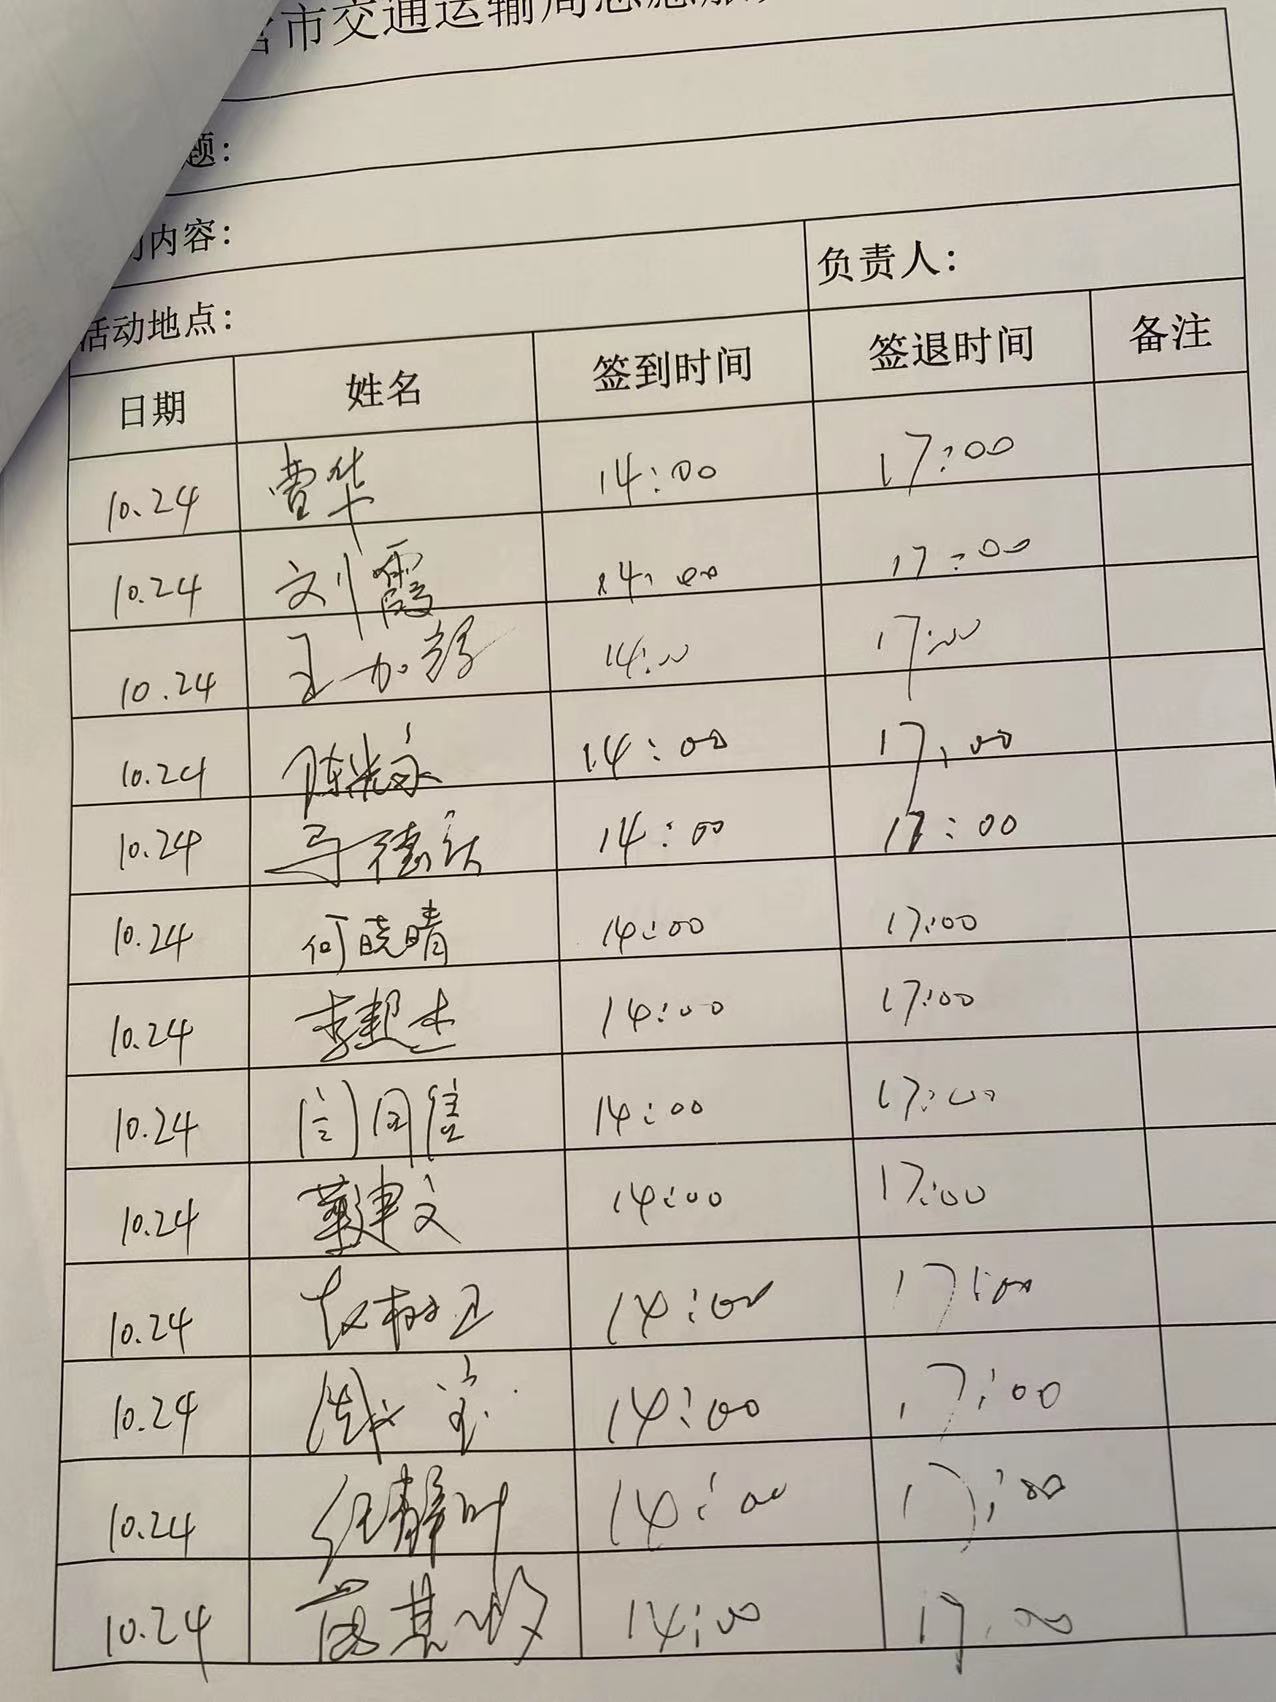 市交通运输局志愿服
题:
内容:
活动地点: 负责人:
日期 姓名 签到时间 签退时间 备注
10.24 曹华 14:00 17:00
10.24 刘霞 14:00 17:00
10.24 王加 14:00 17:00
10.24 陈 14:00 17:00
10.24 马德 14:00 17:00
10.24 何晓晴 14:00 17:00
10.24 李 14:00 17:00
10.24 闫同信 14:00 17:00
10.24 董建文 14:00 17:00
10.24 14:00 17:00
10.24 周 宝 14:00 17:00
10.24 任静叶 14:00 17:00
10.24 14:00 17:00